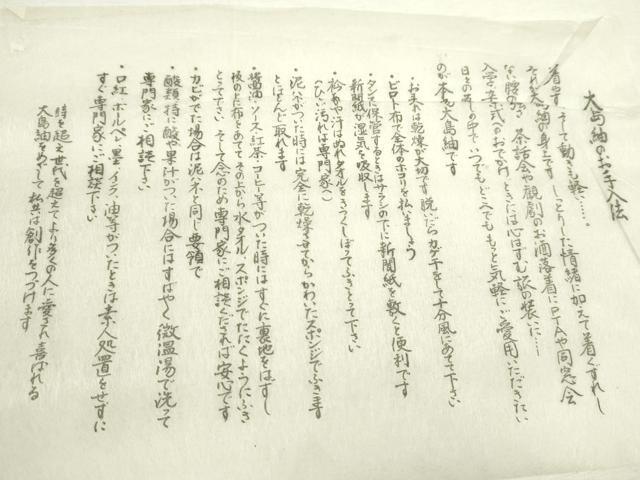 大島紬のお手入法
着やすく そして動きも軽い……。
これが大島紬の身上です しっとりした情緒に加えて着くずれし
ない腰の 茶話会や観劇のお洒落着に PTAや同窓会
入学の素式へのおでかけ ときには心はずむ旅の装いに……
日々の暮しの中で いつでもどこへでも もっと気軽にご愛用いただきたい
のが本場大島紬です
・お手入は乾燥が大切です 脱いだらカゲ干をして十分風にあて下さい
・ビロード布で全体のホコリを払いましょう
・タンスに保管するときはサラシの下に新聞紙を敷くと便利です
新聞紙が湿気を吸収します
・衿あかや汗はぬれタオルをきつくしぼってふきとって下さい
(ひどい汚れは専門家へ)
・泥ハネがついた時には完全に乾燥させてからかわいたスポンジでふきます
とほとんど取れます
・醤油・ソース・紅茶・コーヒー等がついた時にはすぐに裏地をはずし
後の上に布をあててその上から水タオル、スポンジでたたくようにふき
とって下さい そして念のため専門家にご相談くだされば安心です
・カビがでた場合は泥ハネと同じ要領で
・酸類 特に酢や果汁がついた場合にはすばやく微温湯で洗って
専門家にご相談下さい
・口紅、ボールペン、墨、インク、油等がついたときは素人処置をせずに
すぐ専門家にご相談下さい
時を超え世代を超えてより多くの人に愛され喜ばれる
大島紬をめざして私共は創作をつづけます